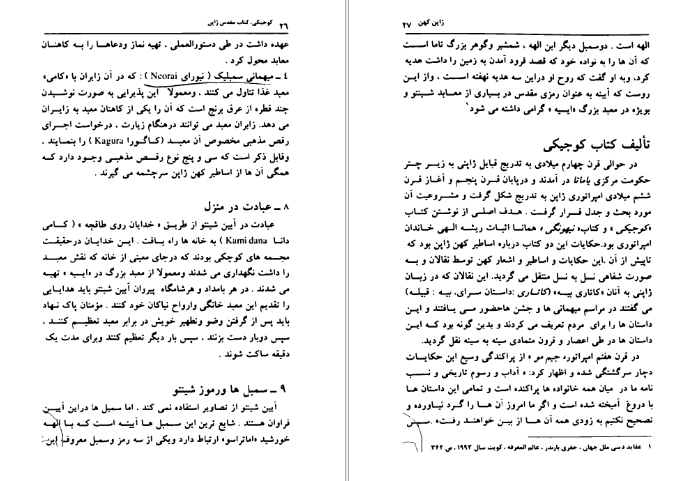 ۲۶ کوجیکی، کتاب مقدس ژاپن
عهده داشت در طی دستورالعملی ، تهیه نماز ودعاها را به کاهنان
معابد محول کرد .
۴ ـ میهمانی سمبلیک ( نیورای Neorai ) : که در آن زایران با «کامی»
معبد غذا تناول می کنند ، ومعمولاً این پذیرایی به صورت نوشیدن
چند قطره از عرق برنج است که آن را یکی از کاهنان معبد به زایران
می دهد. زایران معبد می توانند درهنگام زیارت ، درخواست اجرای
رقص مذهبی مخصوص آن معبد (کاگورا Kagura ) را بنمایند ،
وقابل ذکر است که سی و پنج نوع رقص مذهبی وجود دارد که
همگی آن ها از اساطیر کهن ژاپن سرچشمه می گیرند .
۸ ـ عبادت در منزل
عبادت در آیین شینتو از طریق « خدایان روی طاقچه » ( کامی
دانا Kami dana ) به خانه ها راه یافت . این خدایان درحقیقت
مجسمه های کوچکی بودند که درجای معینی از خانه که نقش معبد
را داشت نگهداری می شدند ومعمولاً از معبد بزرگ در «ایسیه » تهیه
می شدند . در هر بامداد و هرشامگاه پیروان آیین شینتو باید هدایایی
را تقدیم این معبد خانگی وارواح نیاکان خود کنند . مؤمنان پاک نهاد
باید پس از گرفتن وضو وتطهیر خویش در برابر معبد تعظیم کنند ،
سپس دوبار دست بزنند ، سپس بار دیگر تعظیم کنند وبرای مدت یک
دقیقه ساکت شوند .
۹ ـ سمبل ها ورموز شینتو
آیین شینتو از تصاویر استفاده نمی کند ، اما سمبل ها دراین آیین
فراوان هستند . شایع ترین این سمبل ها آیینه است که با الهه
خورشید «اماتراسو» ارتباط دارد ویکی از سه رمز وسمبل معروف این
ژاپن کهن ۲۷
الهه است . دوسمبل دیگر این الهه ، شمشیر وگوهر بزرگ تاما است
که آن ها را به نواده خود که قصد فرود آمدن به زمین را داشت هدیه
کرد، وبه او گفت که روح او دراین سه هدیه نهفته است ، واز این
روست که آیینه به عنوان رمزی مقدس در بسیاری از معابد شینتو و
بویژه در معبد بزرگ «ایسیه » گرامی داشته می شود ۱
تألیف کتاب کوجیکی
در حوالی قرن چهارم میلادی به تدریج قبایل ژاپنی به زیر چتر
حکومت مرکزی یاماتا در آمدند و درپایان قرن پنجم و آغاز قرن
ششم میلادی امپراتوری ژاپن به تدریج شکل گرفت و مشروعیت آن
مورد بحث و جدل قرار گرفت . هدف اصلی از نوشتن کتاب
«کوجیکی » و کتاب« نیهونگی » همانا اثبات ریشه الهی خاندان
امپراتوری بود.حکایات این دو کتاب درباره اساطیر کهن ژاپن بود که
تاپیش از آن ،این حکایات و اساطیر و اشعار کهن توسط نقالان و به
صورت شفاهی نسل به نسل منتقل می گردید. این نقالان که در زبان
ژاپنی به آنان «کاتاری بیه» (کاتاری :داستان سرای، بیه : قبیله)
می گفتند در مراسم میهمانی ها و جشن هاحضور می یافتند و این
داستان ها را برای مردم تعریف می کردند و بدین گونه بود که این
داستان ها در طی اعصار و قرون متمادی سینه به سینه نقل گردید.
در قرن هفتم امپراتور« جیم مو » از پراکندگی وسیع این حکایات
دچار سرگشتگی شده و اظهار کرد: « آداب و رسوم تاریخی و نسب
نامه ما در میان همه خانواده ها پراکنده است و تمامی این داستان ها
با دروغ آمیخته شده است و اگر ما امروز آن ها را گرد نیاورده و
تصحیح نکنیم به زودی همه آن ها از بین خواهند رفت» . سپس
۱ عقاید دینی ملل جهان ، جفری بارندر ، عالم المعرفه ، کویت سال ۱۹۹۳ ، ص ۳۶۲